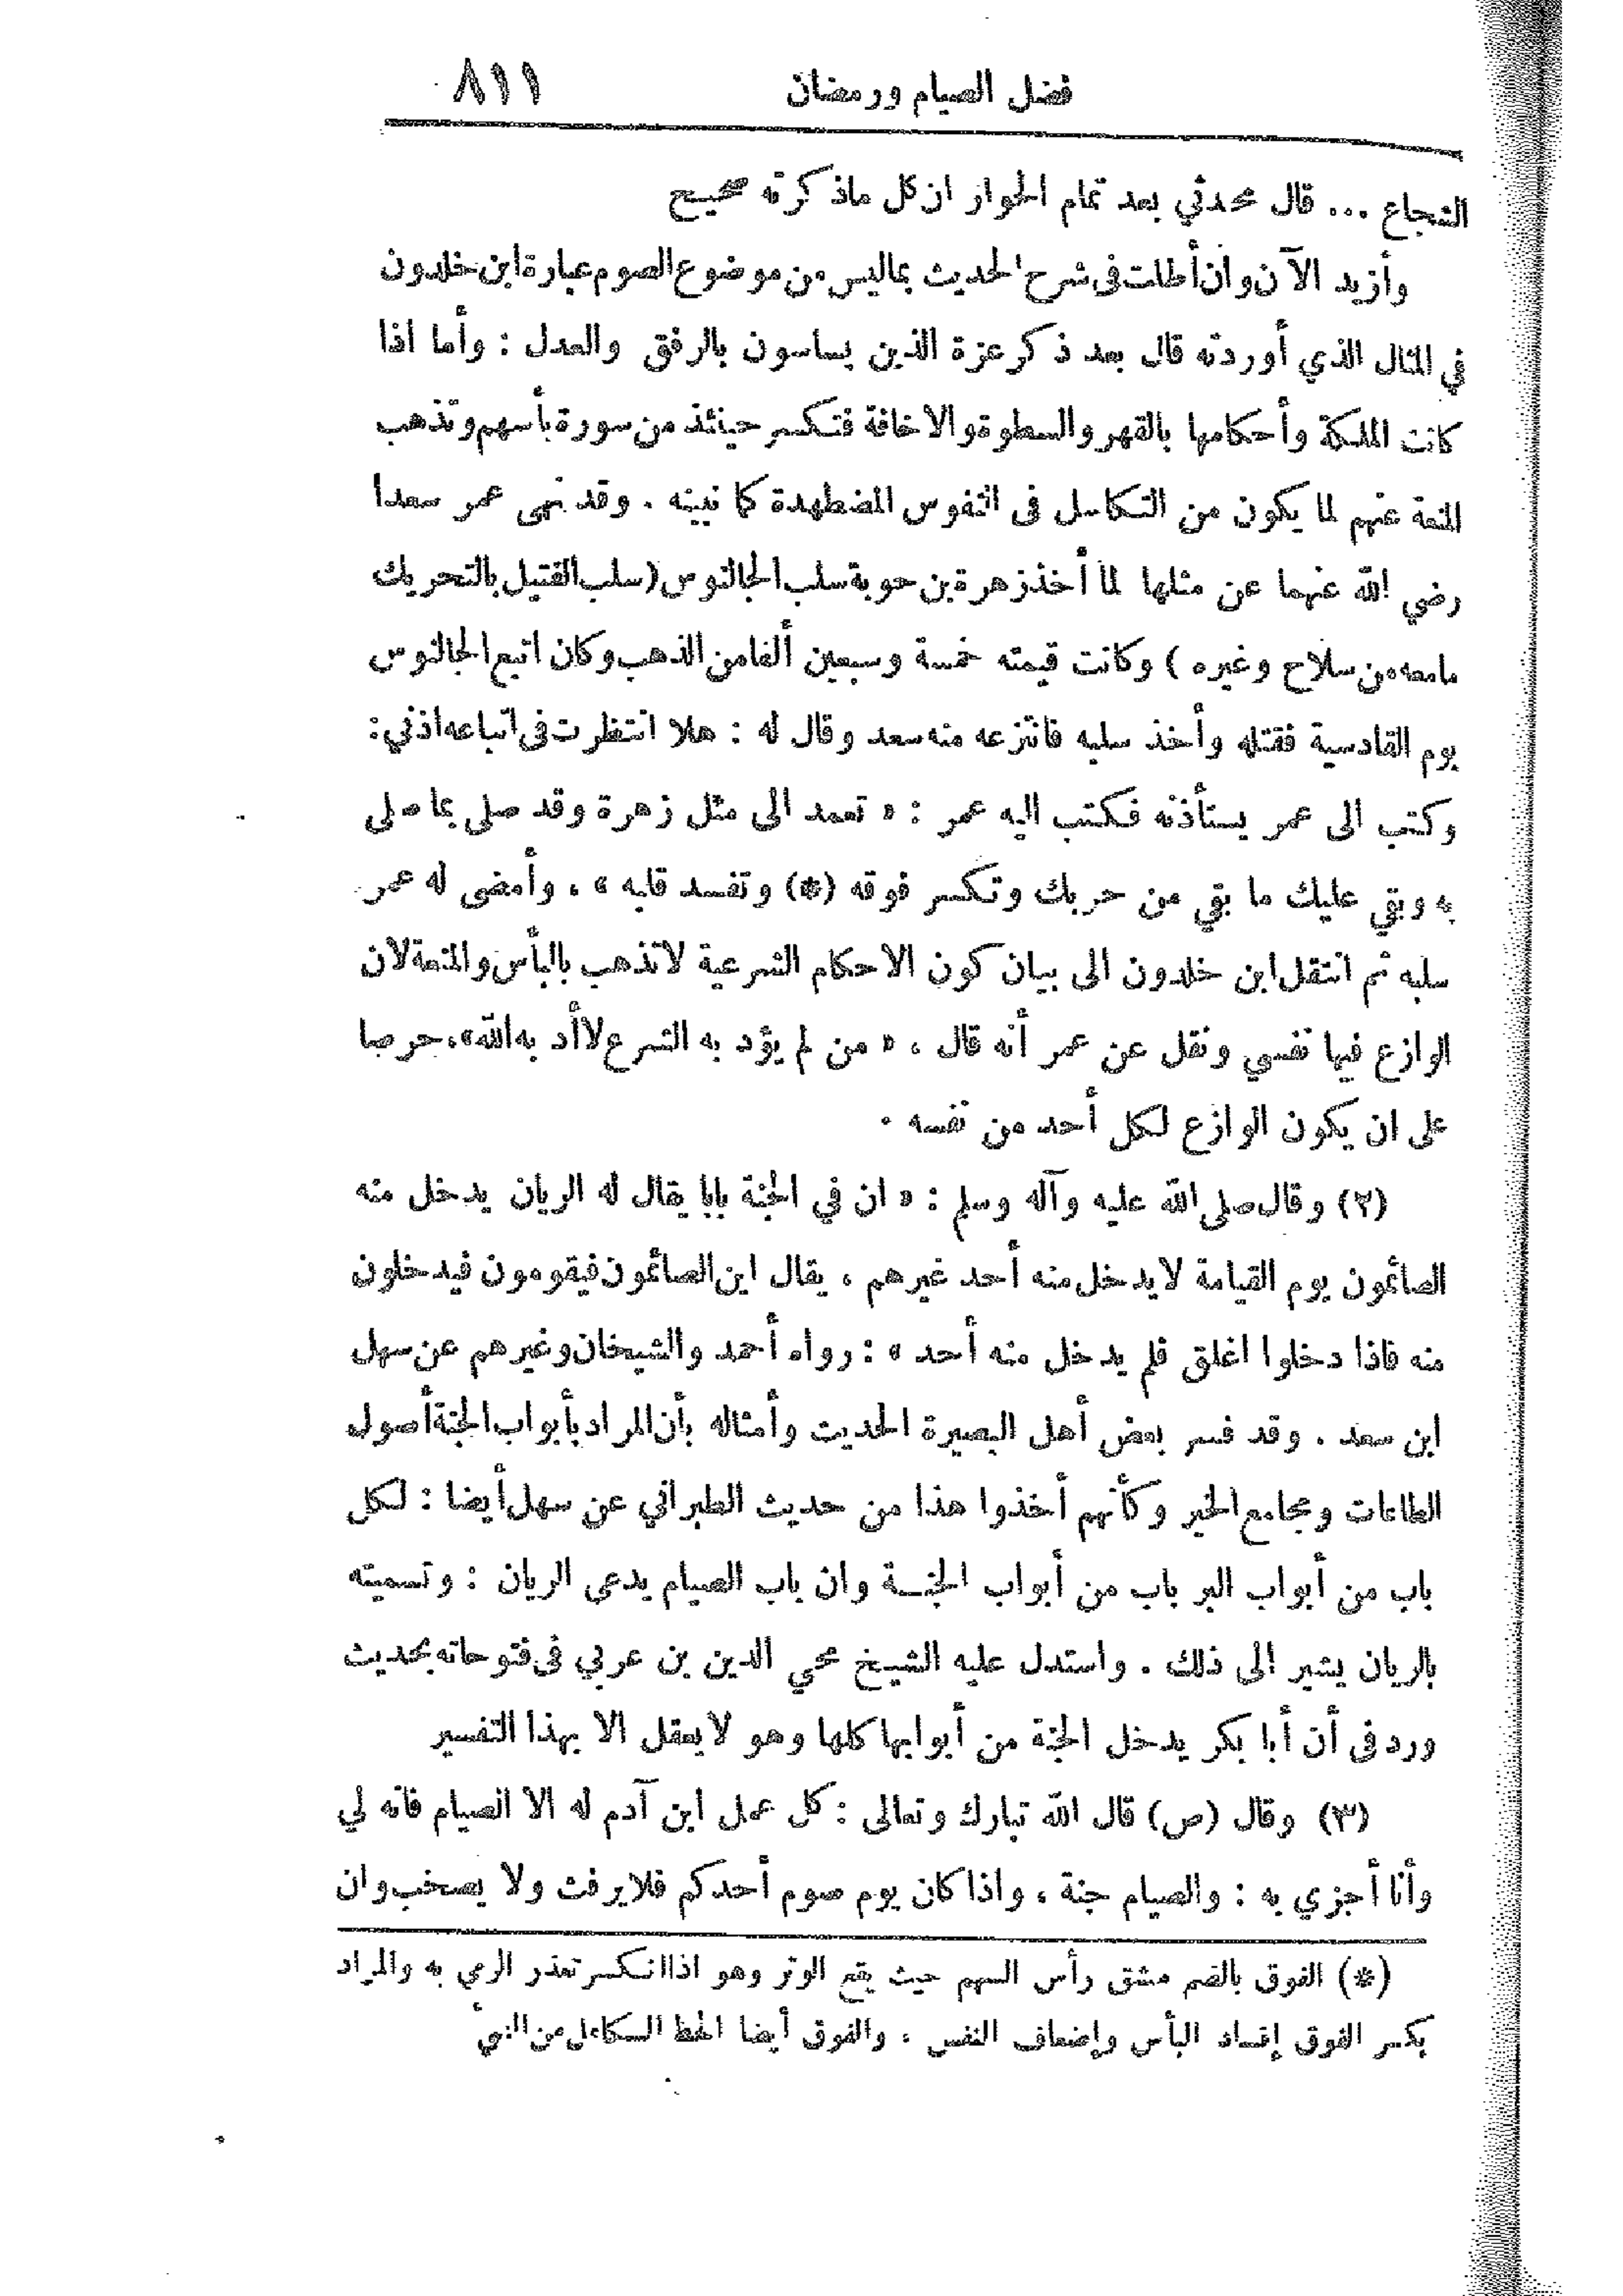 فضل الصيام ورمضان ٨١١
الشجاع ... قال محدثي بعد تمام الحوار ان كل ماذكرته صحيح
وأزيد الآن وان أطلت فى شرح الحديث بماليس من موضوع الصوم عبارة ابن خلدون
في المثال الذي أوردته قال بعد ذكر عزة الذين يساسون بالرفق والعدل : وأما اذا
كانت الملكة وأحكامها بالقهر والسطوة والاخافة فتكسر حينئذ من سورة بأسهم وتذهب
المنعة عنهم لما يكون من التكاسل فى النفوس المضطهدة كما نبينه . وقد نهى عمر سعدا
رضي الله عنهما عن مثلها لما أخذ زهرة بن حوبة سلب الجالنوس (سلب القتيل بالتحريك
مامعه من سلاح وغيره ) وكانت قيمته خمسة وسبعين ألفا من الذهب وكان اتبع الجالنوس
يوم القادسية فقتله وأخذ سلبه فانتزعه منه سعد وقال له : هلا انتظرت فى اتباعه اذني :
وكتب الى عمر يستأذنه فكتب اليه عمر : « تعمد الى مثل زهرة وقد صلي بما صلى
به وبقي عليك ما بقي من حربك وتكسر فوقه (*) وتفسد قلبه » ، وأمضى له عمر
سلبه ثم انتقل ابن خلدون الى بيان كون الاحكام الشرعية لاتذهب بالبأس والمنعة لان
الوازع فيها نفسي ونقل عن عمر أنه قال ، « من لم يؤدبه الشرع لاأدبه الله» ، حرصا
على ان يكون الوازع لكل أحد من نفسه .
(٢) وقال صلى الله عليه وآله وسلم : « ان في الجنة بابا يقال له الريان يدخل منه
الصائمون يوم القيامة لايدخل منه أحد غيرهم ، يقال اين الصائمون فيقومون فيدخلون
منه فاذا دخلوا اغلق فلم يدخل منه أحد » : رواه أحمد والشيخان وغيرهم عن سهل
ابن سعد . وقد فسر بعض أهل البصيرة الحديث وأمثاله بأن المراد بأبواب الجنة أصول
الطاعات ومجامع الخير وكأنهم أخذوا هذا من حديث الطبراني عن سهل أيضا : لكل
باب من أبواب البر باب من أبواب الجنة وان باب الصيام يدعى الريان : وتسميته
بالريان يشير الى ذلك . واستدل عليه الشيخ محي الدين بن عربي فى فتوحاته بحديث
ورد فى أن أبا بكر يدخل الجنة من أبوابها كلها وهو لايعقل الا بهذا التفسير
(٣) وقال (ص) قال الله تبارك وتعالى : كل عمل ابن آدم له الا الصيام فانه لي
وأنا أجزي به : والصيام جنة ، واذا كان يوم صوم أحدكم فلايرفث ولا يصخب وان
(*) الفوق بالضم مشق رأس السهم حيث يقع الوتر وهو اذا انكسر تعذر الرمي به والمراد
بكسر الفوق إفساد البأس وإضعاف النفس . والفوق أيضا الحظ الكامل من الشيء